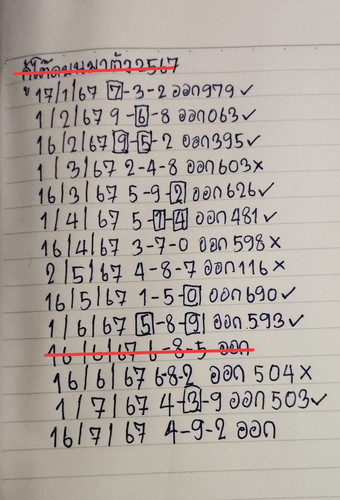 กู้โต๊ดบนมาตัว2567
17/1/67 7-3-2 ออก979✓
1/2/67 9-6-8 ออก063✓
16/2/67 9-5-2 ออก395✓
1/3/67 2-4-8 ออก603×
16/3/67 5-9-2 ออก626✓
1/4/67 5-1-4 ออก481✓
16/4/67 3-7-0 ออก598×
2/5/67 4-8-7 ออก116×
16/5/67 1-5-0 ออก690✓
1/6/67 5-8-9 ออก593✓
16/6/67 6-8-5 ออก
16/6/67 6-8-2 ออก 504×
1/7/67 4-3-9 ออก503✓
16/7/67 4-9-2 ออก